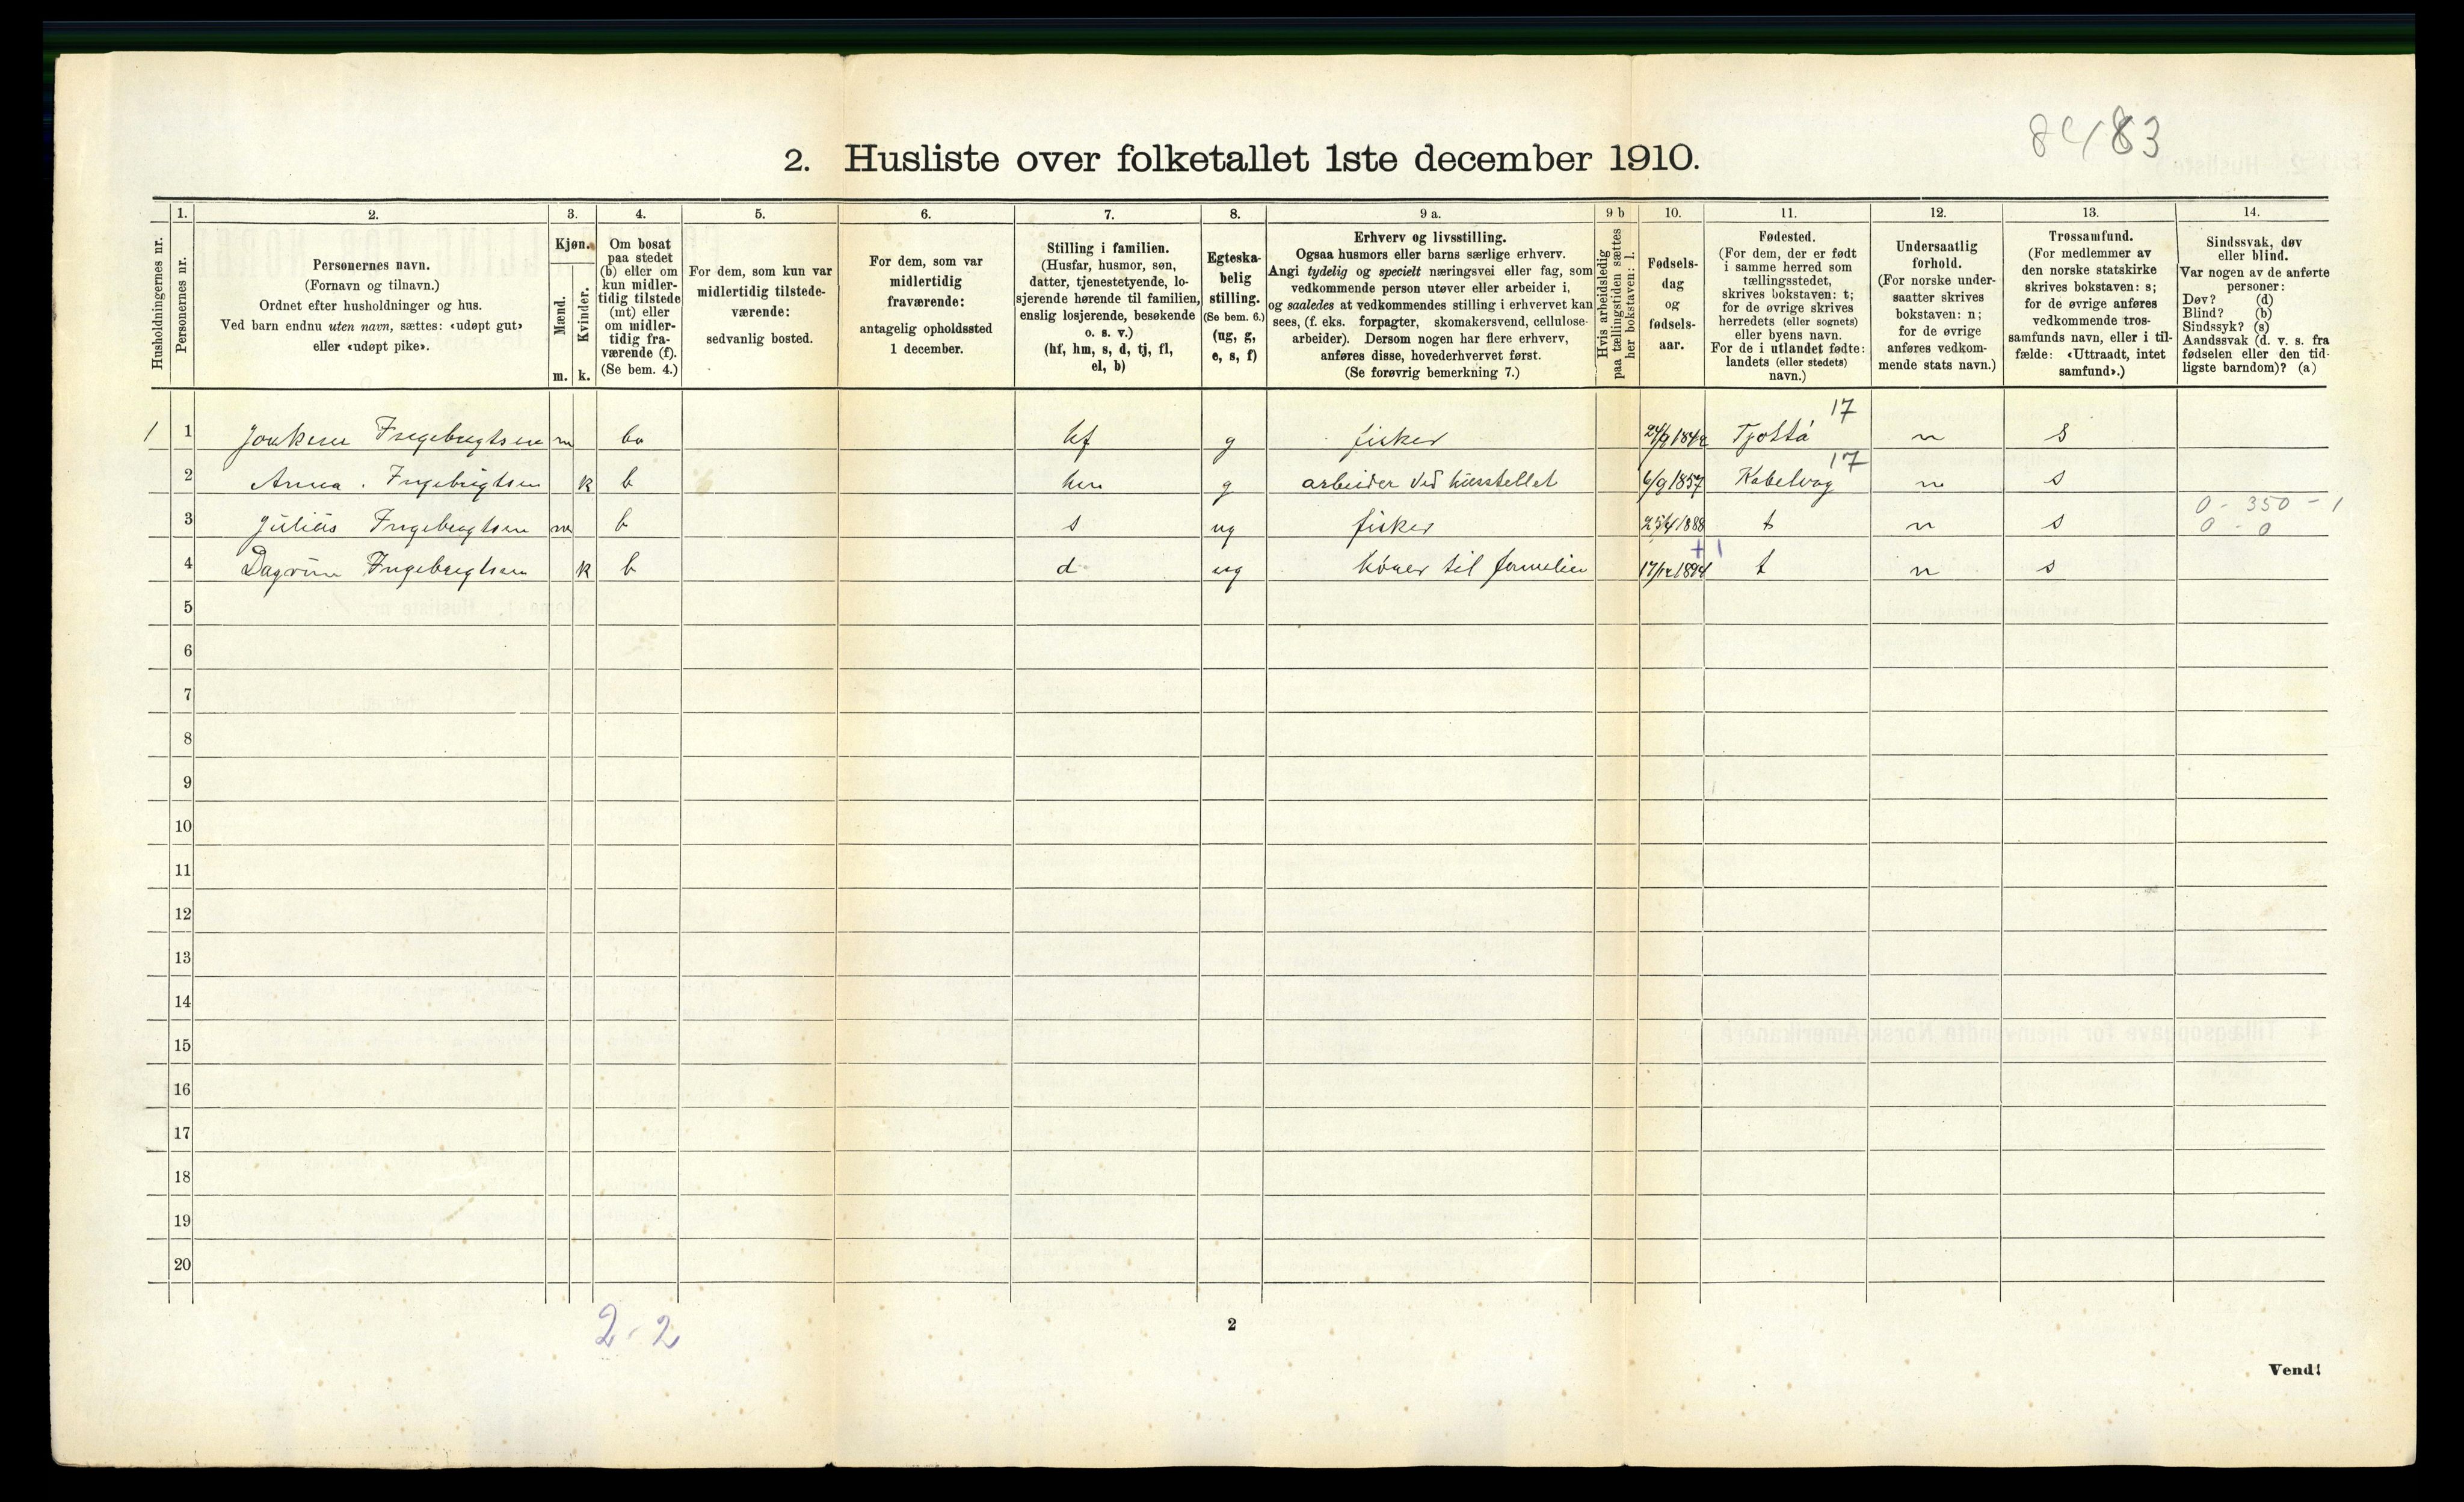 8483
2. Husliste over folketallet 1ste december 1910.
Husholdningernes nr.
1.
Personernes nr.
2.
Personernes navn.
(Fornavn og tilnavn.)
Ordnet efter husholdninger og hus.
Ved barn endnu uten navn, sættes: «udøpt gut»
eller «udøpt pike».
3.
Kjøn.
Mænd.
Kvinder.
m. k.
4.
Om bosat
paa stedet
(b) eller om
kun midler-
tidig tilstede
(mt) eller
om midler-
tidig fra-
værende (f).
(Se bem. 4.)
5.
For dem, som kun var
midlertidig tilstede-
værende:
sedvanlig bosted.
6.
For dem, som var
midlertidig
fraværende:
antagelig opholdssted
1 december.
7.
Stilling i familien.
(Husfar, husmor, søn,
datter, tjenestetyende, lo-
sjerende hørende til familien,
enslig losjerende, besøkende
o. s. v.)
(hf, hm, s, d, tj, fl,
el, b)
8.
Egteska-
belig
stilling.
(Se bem. 6.)
(ug, g,
e, s, f)
9 a.
Erhverv og livsstilling.
Ogsaa husmors eller barns særlige erhverv.
Angi tydelig og specielt næringsvei eller fag, som
vedkommende person utøver eller arbeider i,
og saaledes at vedkommendes stilling i erhvervet kan
sees, (f. eks. forpagter, skomakersvend, cellulose-
arbeider). Dersom nogen har flere erhverv,
anføres disse, hovederhvervet først.
(Se forøvrig bemerkning 7.)
9 b
Hvis arbeidsledig
paa tællingstiden sættes
her bokstaven: l.
10.
Fødsels-
dag
og
fødsels-
aar.
11.
Fødested.
(For dem, der er født
i samme herred som
tællingsstedet,
skrives bokstaven: t;
for de øvrige skrives
herredets (eller sognets)
eller byens navn.
For de i utlandet fødte:
landets (eller stedets)
navn.)
12.
Undersaatlig
forhold.
(For norske under-
saatter skrives
bokstaven: n;
for de øvrige
anføres vedkom-
mende stats navn.)
13.
Trossamfund.
(For medlemmer av
den norske statskirke
skrives bokstaven: s;
for de øvrige anføres
vedkommende tros-
samfunds navn, eller i til-
fælde: «Uttraadt, intet
samfund».)
14.
Sindssvak, døv
eller blind.
Var nogen av de anførte
personer:
Døv? (d)
Blind? (b)
Sindssyk? (s)
Aandssvak (d. v. s. fra
fødselen eller den tid-
ligste barndom)? (a)
17
1 1 Ingebrigtsen m hf g fisker Tjøttå n s
17
2 Anna. Ingebrigtsen k b hm g arbeider ved husstellet 6/9 1857 Kabelvag n s
0 - 350 - 1
3 Julius Ingebrigtsen m b s ug fisker 25/4 1888 t n s 0 - 0
+ 1
4 Dagrun Ingebrigtsen k b d ug hører til familien t n s
5
6
7
8
9
10
11
12
13
14
15
16
17
18
19
20
2-2
2
Vend!